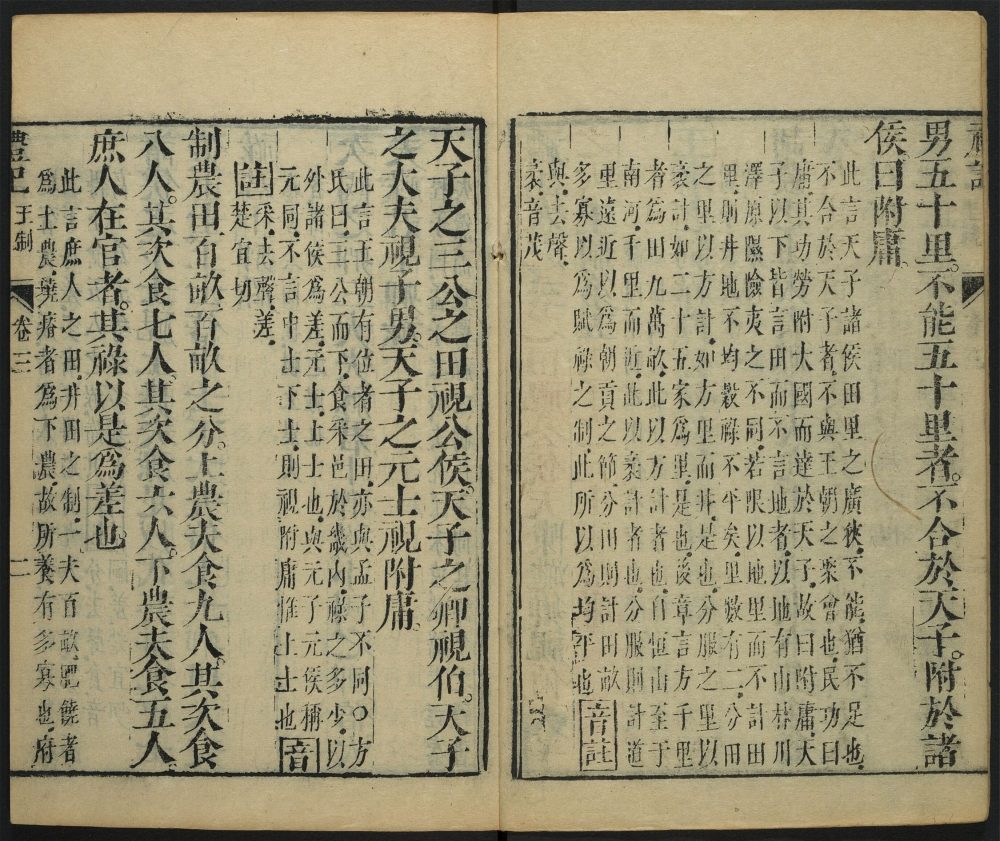 禮記
男五十里。不能五十里者。不合於天子。附於諸
侯曰附庸。
此言天子諸侯田里之廣狹.不能.猶不足也.
不合於天子者.不與王朝之聚會也.民功曰
庸.其功勞附大國而達於天子.故曰附庸.大
子以下.皆言田而不言地者.以地有山林川
澤原隰險夷之不同.若限以地里而不計田
里.則井地不均.穀祿不平矣.里數有二.分田
之里以方計.如方里而井是也.分服之里以
袤計.如二十五家爲里是也.後章言方千里
者爲田九萬畝.此以方計者也.自恒山至于
南河.千里而近.此以袤計者也.分服則計道
里遠近.以爲朝貢之節.分田則計田畝
多寡.以爲賦之制.此所以爲均平也 音註
與.去聲.
袤.音茂
天子之三公之田視公侯。天子之卿視伯。天子
之大夫視子男。天子之元士視附庸。
此言王朝有位者之田.亦與孟子不同○方
氏曰.三公而下.食采邑於畿內.祿之多少.以
外諸侯爲差.元士.上士也.與元子元侯稱
元同.不言中士下士.則視附庸惟上士也 音
註 采.去聲.差.
楚宜切
制農田百畝。百畝之分。上農夫食九人。其次食
八人。其次食七人。其次食六人。下農夫食五人。
庶人在官者。其祿以是爲差也。
此言庶人之田.井田之制.一夫百畝.肥饒者
爲上農.墝瘠者爲下農.故所養有多寡也.府
禮記 王制 卷三 二